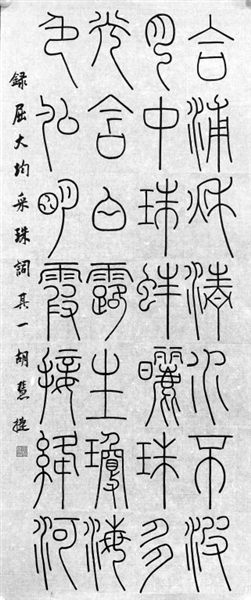 合浦秋清水不波
月中珠蚌曬珠多
光含白露生瓊海
色似明霞接絳河
録屈大均采珠詞其一胡慧捷